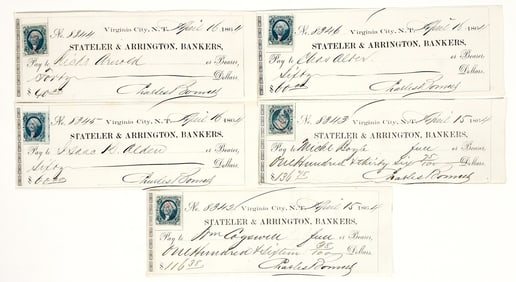 No. 8344 Virginia City, N.T. April 16 1864
STATELER & ARRINGTON, BANKERS,
Pay to Arnold or Bearer,
Sixty Dollars.
$60.00 Charles Bonner
No. 8346 Virginia City, N.T. April 16 1864
STATELER & ARRINGTON, BANKERS,
Pay to Chas Alden or Bearer,
Sixty Dollars.
$60.00 Charles Bonner
No. 8345 Virginia City, N.T. April 16 1864
STATELER & ARRINGTON, BANKERS,
Pay to Isaac Alden or Bearer,
Sixty Dollars.
$60.00 Charles Bonner
No. 8343 Virginia City, N.T. April 15 1864
STATELER & ARRINGTON, BANKERS,
Pay to Michl or Bearer,
One Hundred & thirty Six 75/100 Dollars.
$136.75 Charles Bonner
No. 8342 Virginia City, N.T. April 15 1864
STATELER & ARRINGTON, BANKERS,
Pay to Wm Cogswell or Bearer,
One Hundred & Sixteen 38/100 Dollars.
$116.38 Charles Bonner